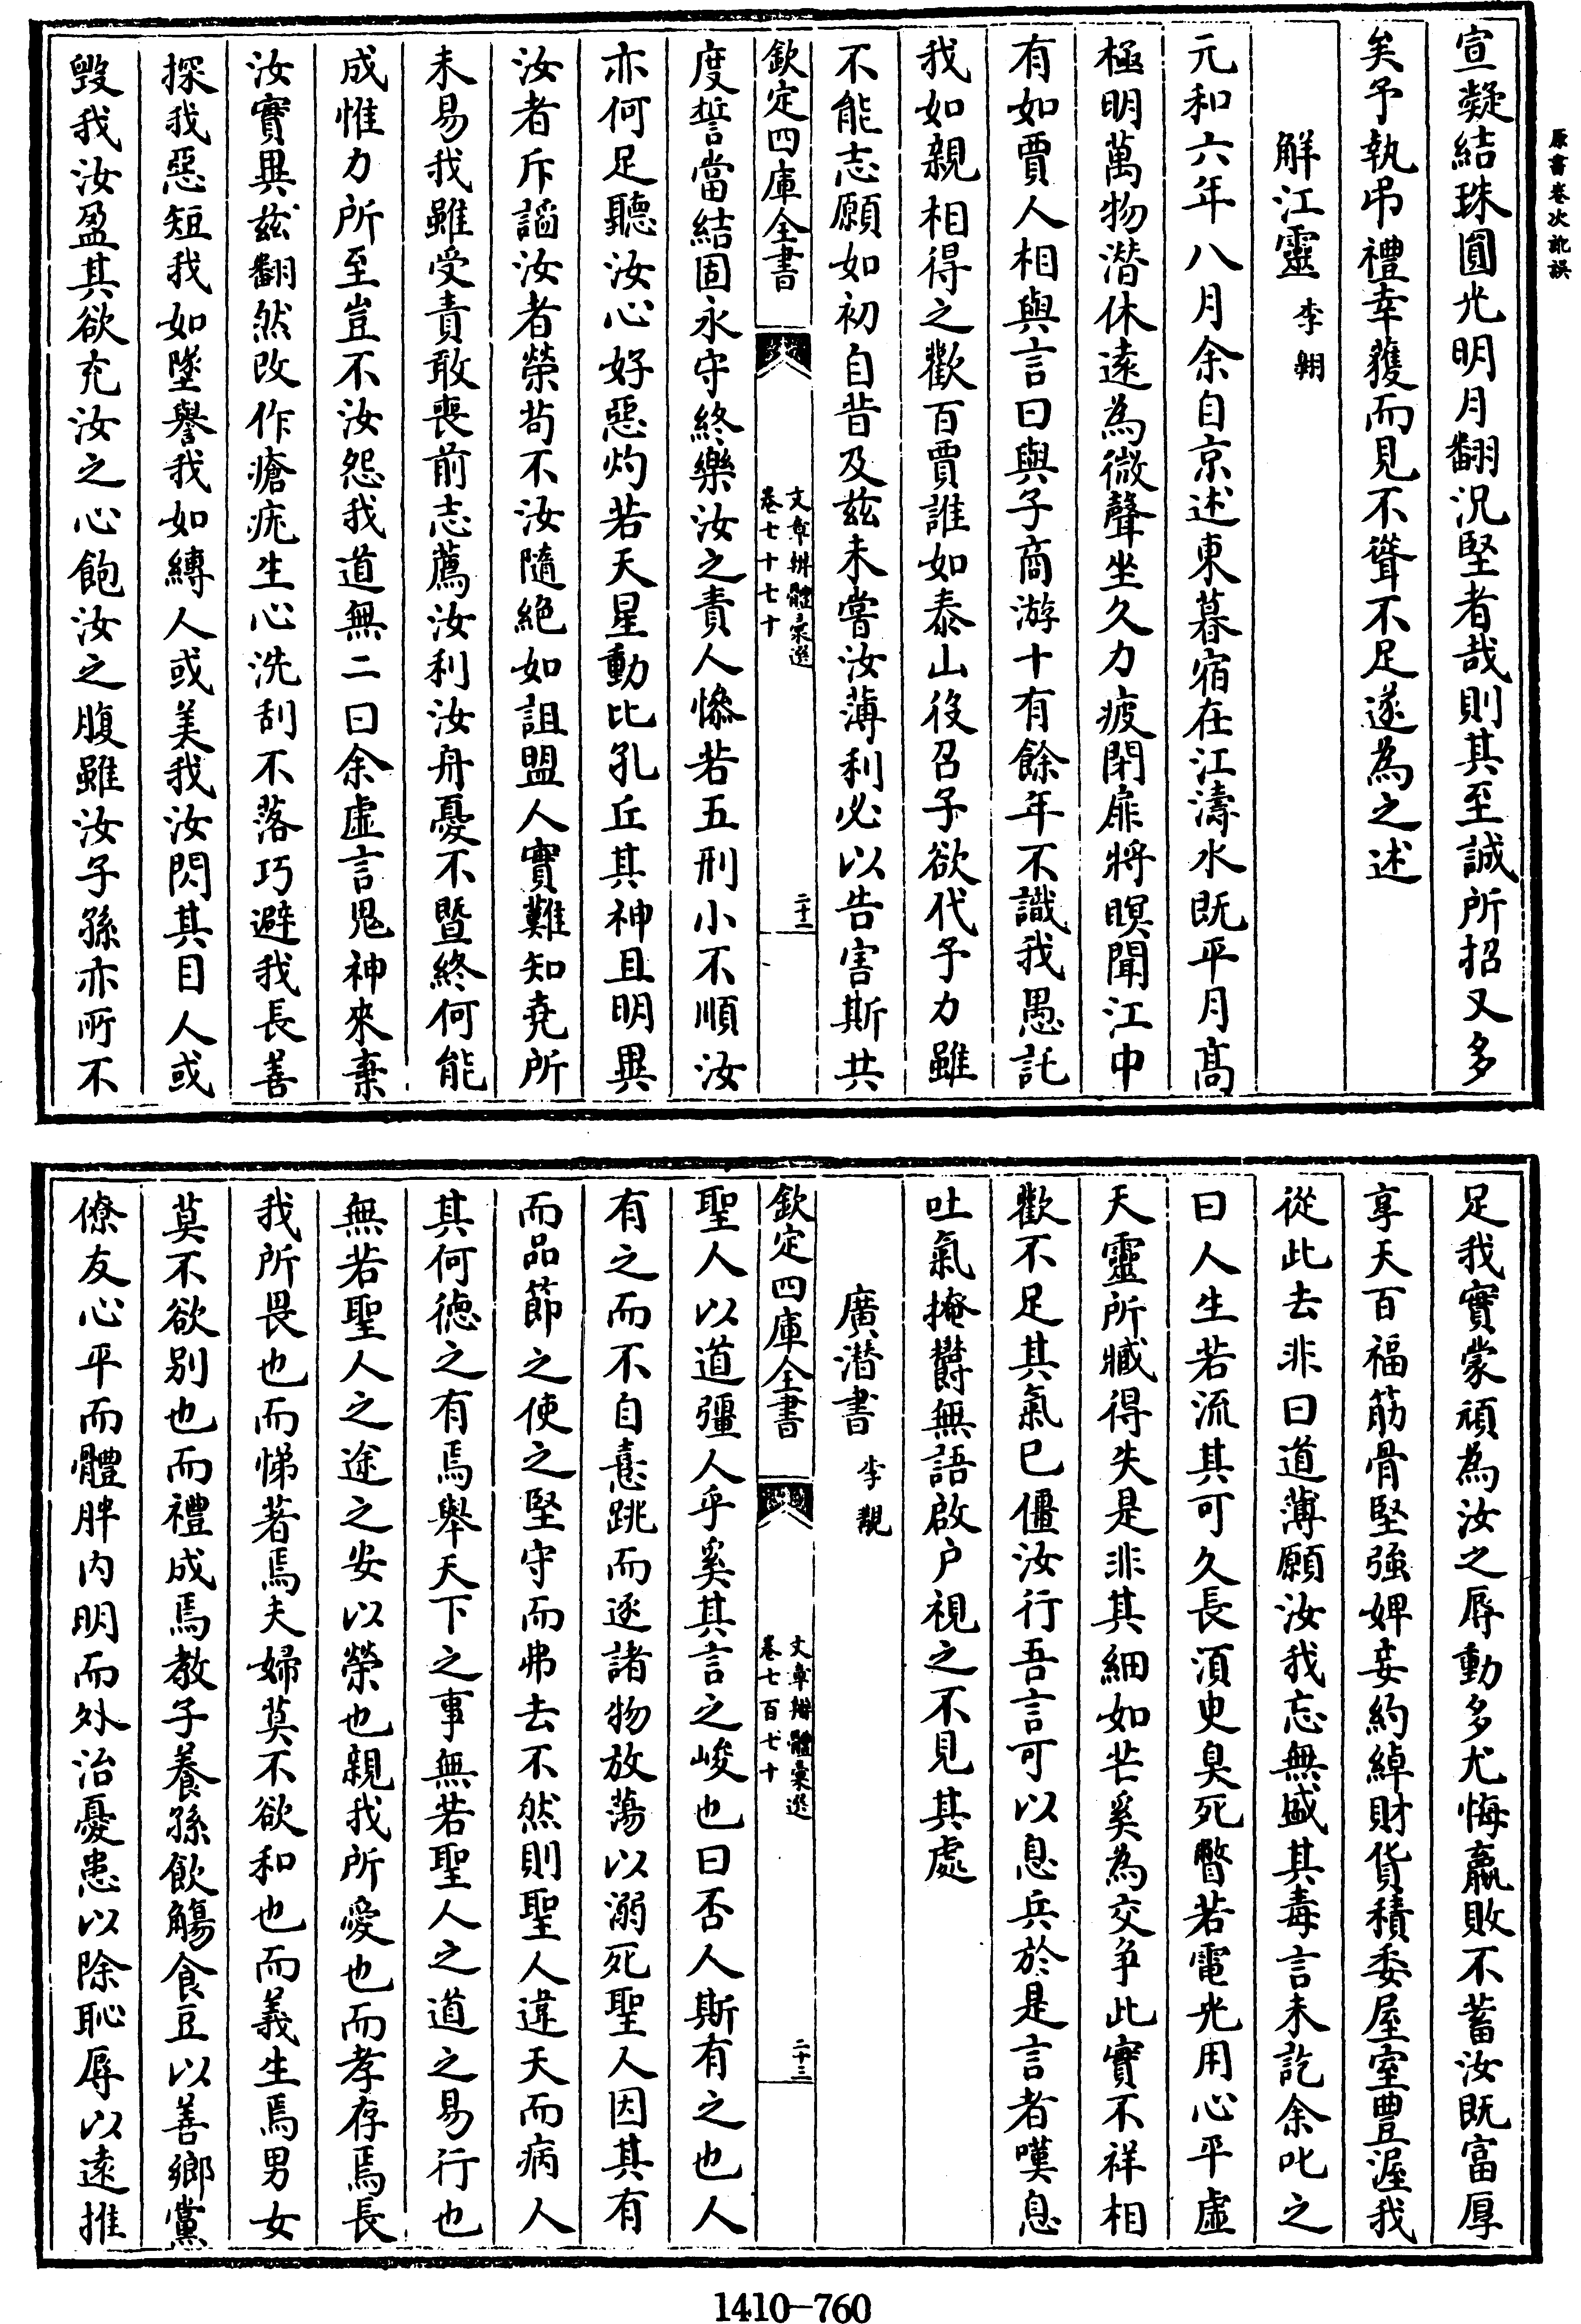 原書卷次訛誤
宣凝結珠圓光明月翻況堅者哉則其至誠所招又多
矣予執弔禮幸獲而見不聳不足遂為之述
解江靈 李翱
元和六年八月余自京述東暮宿在江濤水既平月高
極明萬物潛休遠為微聲坐久力疲閉扉將瞑聞江中
有如賈人相與言曰與子商游十有餘年不識我愚託
我如親相得之歡百賈誰如泰山役召予欲代予力雖
不能志願如初自昔及茲未嘗汝薄利必以告害斯共
欽定四庫全書 文章辨體彙選 卷七十七十 二十二
度誓當結固永守終樂汝之責人慘若五刑小不順汝
亦何足聽汝心好惡灼若天星動比孔丘其神且明異
汝者斥謟汝者榮茍不汝隨絕如詛盟人實難知堯所
未易我雖受責敢喪前志薦汝利汝舟憂不暨終何能
成惟力所至豈不汝怨我道無二曰余虛言鬼神來棄
汝實異茲翻然改作瘡疣生心洗刮不落巧避我長善
探我惡短我如墜譽我如縛人或美我汝閃其目人或
毀我汝盈其欲充汝之心飽汝之腹雖汝子孫亦所不
足我實蒙頑為汝之辱動多尤悔羸敗不蓄汝既富厚
享天百福筋骨堅強婢妾約綽財貨積委屋室豐渥我
從此去非曰道薄願汝我忘無盛其毒言未訖余叱之
曰人生若流其可久長湏臾臭死瞥若電光用心平虛
天靈所臧得失是非其細如芒奚為交爭此實不祥相
歡不足其氣已僵汝行吾言可以息兵於是言者嘆息
吐氣掩鬱無語啟户視之不見其處
廣潛書 李覯
欽定四庫全書 文章辨體彙選 卷七百七十 二十三
聖人以道彊人乎奚其言之峻也曰否人斯有之也人
有之而不自憙跳而逐諸物放蕩以溺死聖人因其有
而品節之使之堅守而弗去不然則聖人違天而病人
其何徳之有焉舉天下之事無若聖人之道之易行也
無若聖人之途之安以榮也親我所愛也而孝存焉長
我所畏也而悌著焉夫婦莫不欲和也而義生焉男女
莫不欲别也而禮成焉教子養孫飲觴食豆以善鄉黨
僚友心平而體胖内明而外治憂患以除恥辱以遠推
1410—760